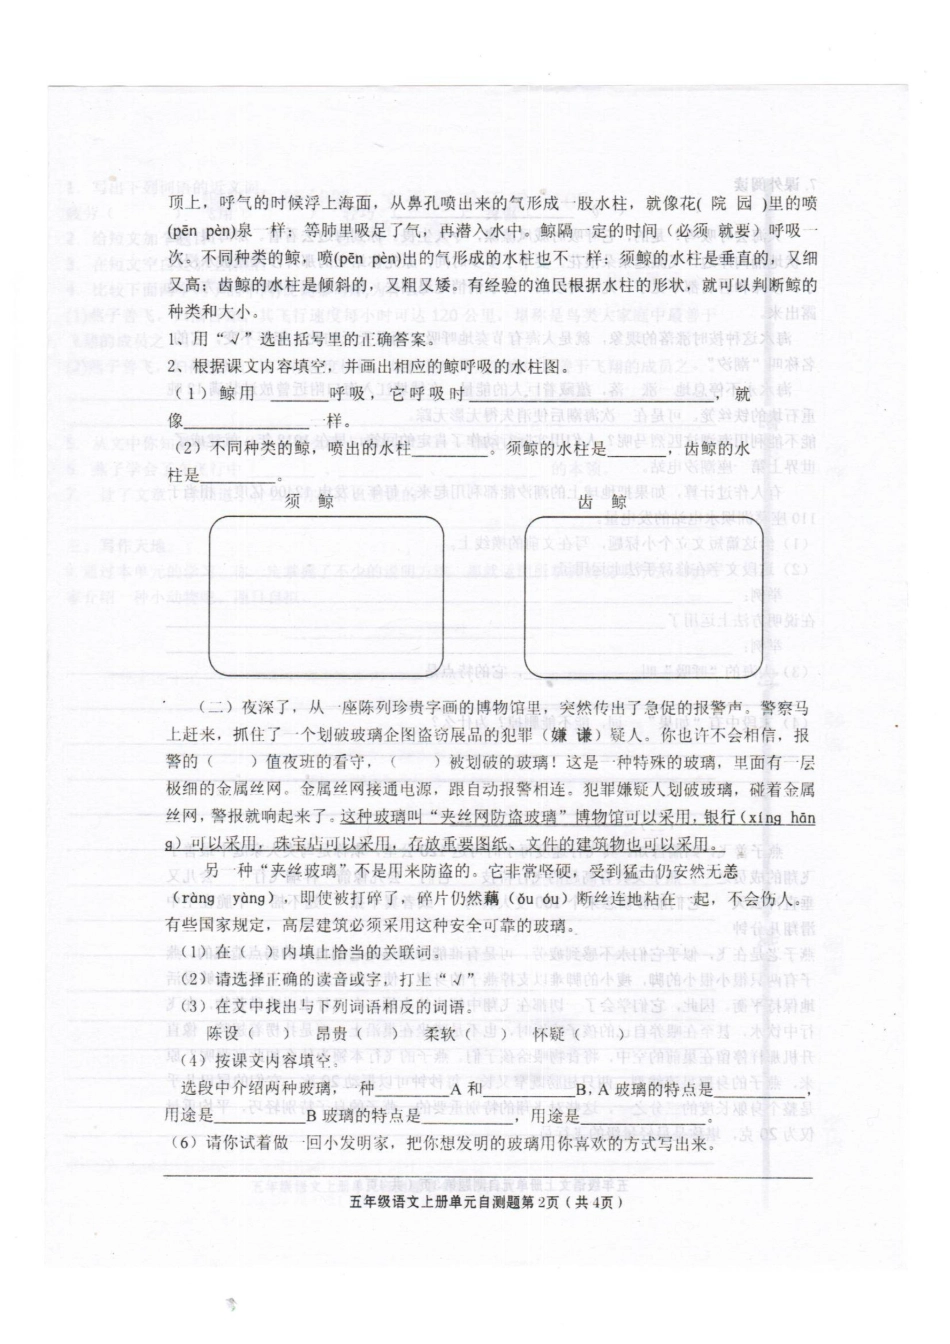 顶上，呼气的时候浮上海面，从鼻孔喷出来的气形成一股水柱，就像花( 院 园 )里的喷
(pēn pèn)泉一样；等肺里吸足了气，再潜入水中。鲸隔一定的时间（必须 就要）呼吸一
次。不同种类的鲸，喷(pēn pèn)出的气形成的水柱也不一样：须鲸的水柱是垂直的，又细
又高；齿鲸的水柱是倾斜的，又粗又矮。有经验的渔民根据水柱的形状，就可以判断鲸的
种类和大小。
1、用“√”选出括号里的正确答案。
2、根据课文内容填空，并画出相应的鲸呼吸的水柱图。
（1）鲸用 ______呼吸，它呼吸时______________________，就
像____________一样。
（2）不同种类的鲸，喷出的水柱________。须鲸的水柱是______，齿鲸的水
柱是__________。
须 鲸 齿 鲸
（二）夜深了，从一座陈列珍贵字画的博物馆里，突然传出了急促的报警声。警察马
上赶来，抓住了一个划破玻璃企图盗窃展品的犯罪（嫌 谦）疑人。你也许不会相信，报
警的（ ）值夜班的看守，（ ）被划破的玻璃！这是一种特殊的玻璃，里面有一层
极细的金属丝网。金属丝网接通电源，跟自动报警相连。犯罪嫌疑人划破玻璃，碰着金属
丝网，警报就响起来了。这种玻璃叫“夹丝网防盗玻璃”博物馆可以采用，银行(xíng hán
g）可以采用，珠宝店可以采用，存放重要图纸、文件的建筑物也可以采用。
另一种“夹丝玻璃”不是用来防盗的。它非常坚硬，受到猛击仍安然无恙
（ràng yàng），即使被打碎了，碎片仍然藕（ǒu óu）断丝连地粘在一起，不会伤人。
有些国家规定，高层建筑必须采用这种安全可靠的玻璃。
（1）在（ ）内填上恰当的关联词。
（2）请选择正确的读音或字，打上“√”
（3）在文中找出与下列词语相反的词语。
陈设（ ） 昂贵（ ） 柔软（ ） 怀疑（ ）
（4）按课文内容填空。
选段中介绍两种玻璃，一种________A 和一种________B，A 玻璃的特点是________，
用途是________B 玻璃的特点是________，用途是___________。
（6）请你试着做一回小发明家，把你想发明的玻璃用你喜欢的方式写出来。
五年级语文上册单元自测题第2页（共 4页）